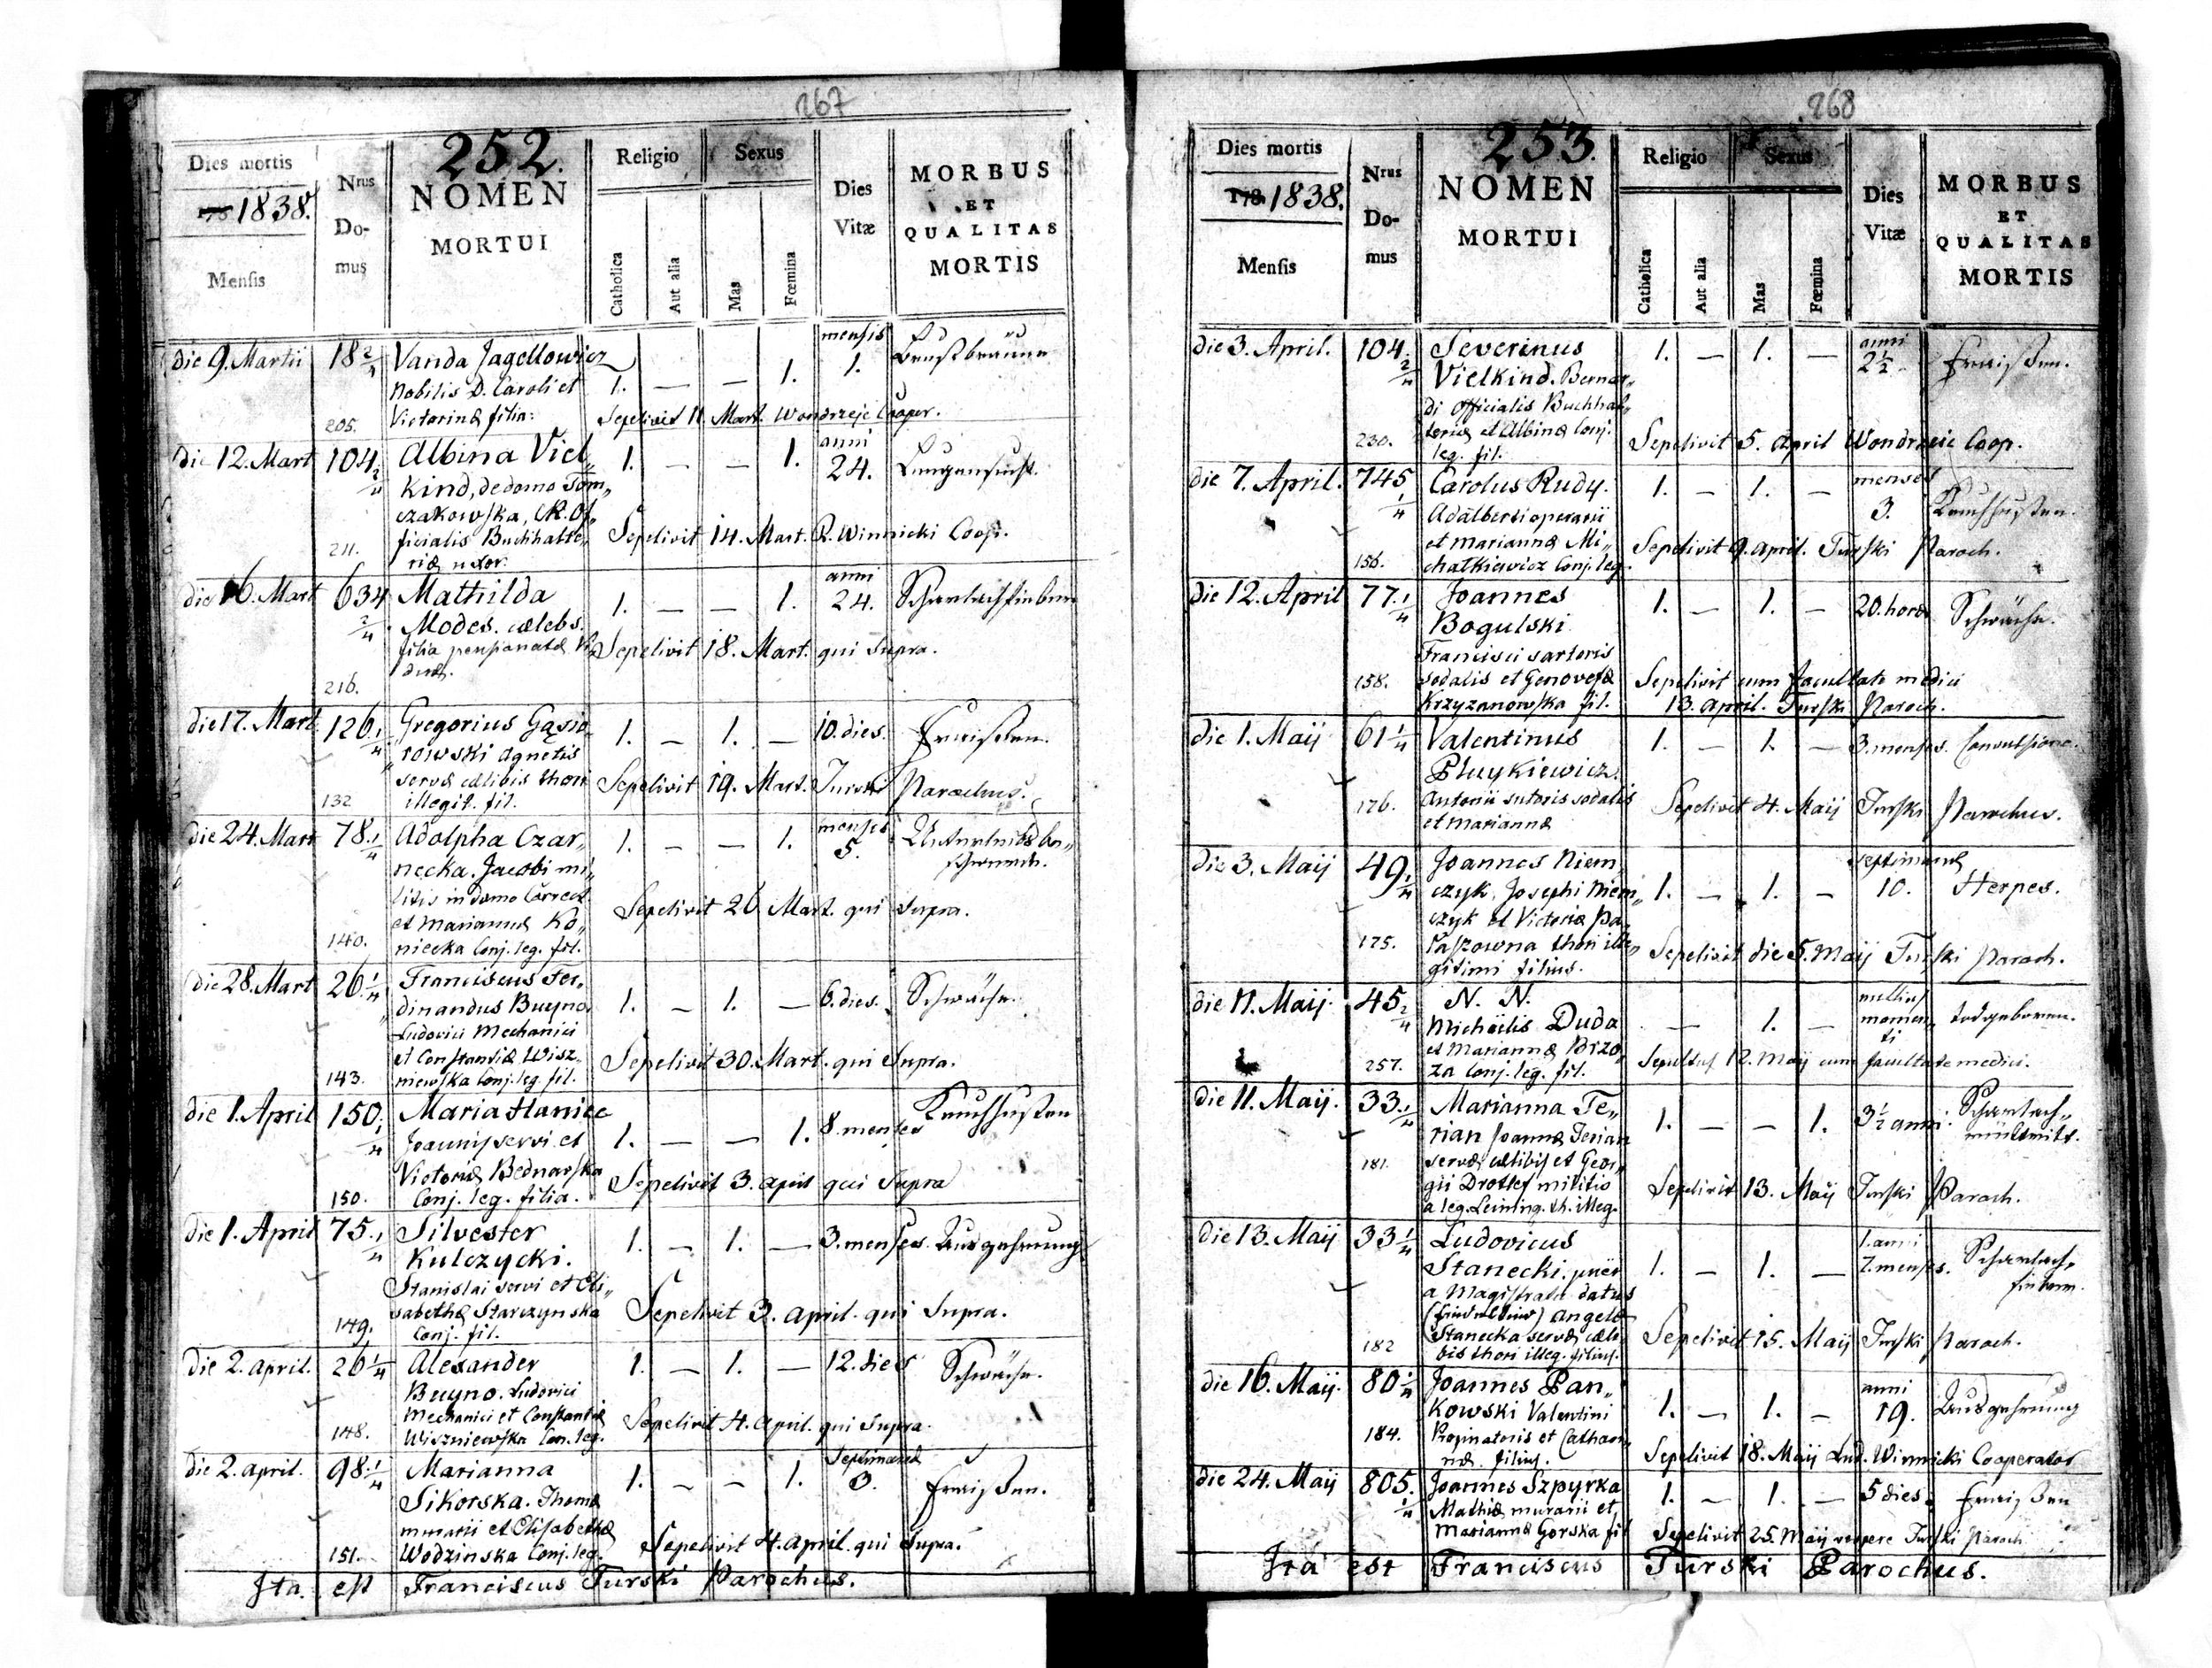 267
252.
Dies mortis
1838.
Mensis
Nrus Domus
NOMEN
MORTUI
Religio
Catholica
Aut alia
Sexus
Mas
Fœmina
Dies
Vitæ
MORBUS
ET
QUALITAS
MORTIS
die 9. Martii 18 2/4 Vanda Jagellowicz 1. — — 1. mensis 1. Brustbräune
Nobilis D. Caroli et
Victorinæ filia:
205.
Sepelivit 11. Mart. Wondrzeje Cooper.
die 12. Mart 104 2/4 Albina Viel„ 1. — — 1. anni 24. Lungensucht.
kind, de domo Tom„
czakowska, CR. Of„
ficialis Buchhalte„
riæ uxor.
211.
Sepelivit 14. Mart. R. Winnicki Coop.
die 16. Mart 634 2/4 Mathilda 1. — — 1. anni 24. Scharlachfieber
Modes. cælebs.
filia pensionatæ Vi„
duæ.
216.
Sepelivit 18. Mart. qui Supra.
die 17. Mart. 126 1/4 Gregorius Gąsio„ 1. — 1. — 10. dies. Fraißen.
rowski Agnetis
servæ cælibis thori
illegit. fil.
132
Sepelivit 19. Mart. Turski Parochus.
die 24. Mart 78 1/4 Adolpha Czar„ 1. — — 1. menses 5.
necka. Jacobi mi„
litis in domo Correct.
et Mariannæ Ko„
niecka Conj. leg. fil.
140.
Sepelivit 26. Mart. qui Supra.
die 28. Mart 26 1/4 Franciscus Fer„ 1. — 1. — 6. dies. Schwäche.
dinandus Buyno.
Ludovici Mechanici
et Constantiæ Wisz„
niewska Conj. leg. fil.
143.
Sepelivit 30. Mart. qui Supra.
die 1. April 150 1/4 Maria Haniec 1. — — 1. 8. menses Keuchhusten
Joannis servi et
Victoriæ Bednarska
Conj. leg. filia.
150.
Sepelivit 3. april qui Supra
die 1. April 75. 1/4 Silvester 1. — 1. — 3. menses. Auszehrung
Kulczycki.
Stanislai servi et Eli„
sabethæ Starczynska
Conj. fil.
149.
Sepelivit 3. april. qui Supra.
die 2. april. 26 1/4 Alexander 1. — 1. — 12. dies Schwäche.
Buyno. Ludovici
Mechanici et Constantiæ
Wiszniewska Con. leg.
148.
Sepelivit 4. april. qui Supra.
die 2. april. 98. 1/4 Marianna 1. — — 1. Septimanæ 3. Fraißen.
Sikorska. Thomæ
murarii et Elisabethæ
Wodzinska Conj. leg.
151.
Sepelivit 4. april. qui Supra.
Ita est Franciscus Turski Parochus.
268
253.
Dies mortis
1838.
Mensis
Nrus Domus
NOMEN
MORTUI
Religio
Catholica
Aut alia
Sexus
Mas
Fœmina
Dies
Vitæ
MORBUS
ET
QUALITAS
MORTIS
die 3. April. 104. 2/4 Severinus 1. — 1. — anni 2½ Fraißen.
Vielkind. Bernar„
di Officialis Buchhal„
teriæ et Albinæ Conj.
leg. fil.
230.
Sepelivit 5. April Wondrzeje Coop.
die 7. April. 745 1/4 Carolus Rudy. 1. — 1. — menses 3. Keuchhusten.
Adalberti operarii
et Mariannæ Mi„
chatkiewicz Conj. leg.
156.
Sepelivit 9. april. Turski Paroch.
die 12. April 77. 1/4 Joannes 1. — 1. — 20. horæ Schwäche.
Bogulski.
Francisci sartoris
sodalis et Genovefæ
Krzyzanowska fil.
158.
Sepelivit cum facultate medici
13. april. Turski Paroch.
die 1. Maij 61 1/4 Valentinus 1. — 1. — 3. menses. Convulsione.
Antonii sutoris sodalis
et Mariannæ
176.
Sepelivit 4. Maij Turski Parochus.
die 3. Maij 49 1/4 Joannes Niem„ 1. — 1. — septimanæ 10. Herpes.
czyk, Josephi Niem„
czyk et Victoriæ Pa„
raszowna thori ille„
gitimi filius.
175.
Sepelivit die 5. Maij Turski Paroch.
die 11. Maij. 45 2/4 N. N. — 1. — nullius momen„ ti todgeboren.
Michäelis Duda
et Mariannæ Brzo„
za Conj. leg. fil.
257.
Sepultus 12. Maij cum facultate medici.
die 11. Maij. 33. 1/4 Marianna Te„ 1. — — 1. 3½ anni.
rian Joannæ Terian
servæ cælibis et Geor„
gii Drotlef militis
a leg. Leining. th. illeg.
181.
Sepelivit 13. Maij Turski Paroch.
die 13. Maij 33 1/4 Ludovicus 1. — 1. — 1. anni 7. menses. Scharlach„
fieber.
Stanecki. puer
a Magistratu datus
Angelæ
Stanecka servæ cæli„
bis thori illeg. filius.
182
Sepelivit 15. Maij Turski Paroch.
die 16. Maij. 80 1/4 Joannes Pan„ 1. — 1. — anni 19. Auszehrung
kowski Valentini
Propinatoris et Cathari„
næ filius.
184.
Sepelivit 18. Maij Lud. Winnicki Cooperator
die 24. Maij 805. 1/4 Joannes Szpyrka 1. — 1. — 5 dies. Fraißen
Mathiæ murarii et
Mariannæ Gorska fil
Sepelivit 25. Maij vespere Turski Paroch.
Ita est Franciscus Turski Parochus.